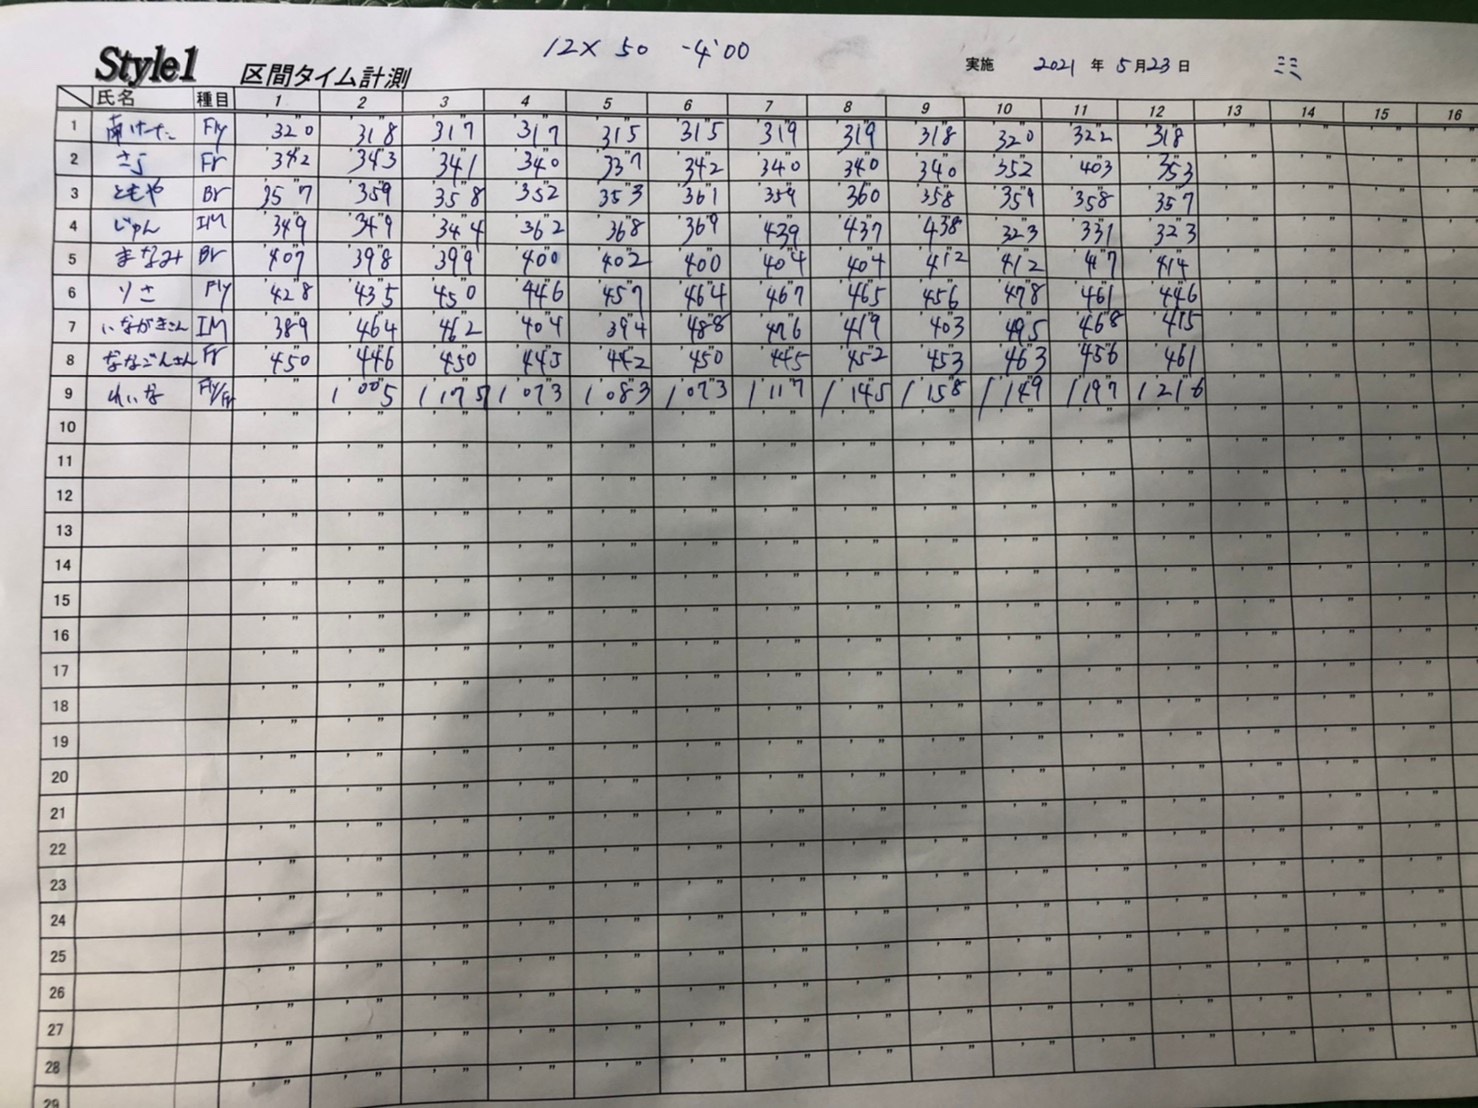 Style1 区間タイム計測 12X 50 -4'00 実施 2021 年 5月23日 ミミ
氏名 種目 1 2 3 4 5 6 7 8 9 10 11 12 13 14 15 16
1 Fly 32"0 31"8 31"7 31"7 31"5 31"5 31"9 31"9 31"8 32"0 32"2 31"8
2 さら Fr 34"2 34"3 34"1 34"0 33"7 34"2 34"0 34"0 34"0 35"2 40"3 35"3
3 ともや Br 35"7 35"9 35"8 35"2 35"3 36"1 35"9 36"0 35"8 35"9 35"8 35"7
4 じゅん IM 34"9 34"9 34"4 36"2 36"8 36"9 43"9 43"7 43"8 32"3 33"1 32"3
5 まなみ Br 40"7 39"8 39"9 40"0 40"2 40"0 40"4 40"4 41"2 41"2 41"7 41"4
6 りさ Fly 42"8 43"5 45"0 44"6 45"7 46"4 46"7 46"5 45"6 47"8 46"1 44"6
7 いながきさん IM 38"9 46"4 46"2 40"4 39"4 48"8 47"6 41"9 40"3 49"5 46"8 41"5
8 ななごんさん Fr 45"0 44"6 45"0 44"5 44"2 45"0 44"5 45"2 45"3 46"3 45"6 46"1
9 れいな Fly/Fr 1'00"5 1'07"5 1'07"3 1'08"3 1'07"3 1'11"7 1'14"5 1'15"8 1'14"9 1'19"7 1'21"6
10
11
12
13
14
15
16
17
18
19
20
21
22
23
24
25
26
27
28
29